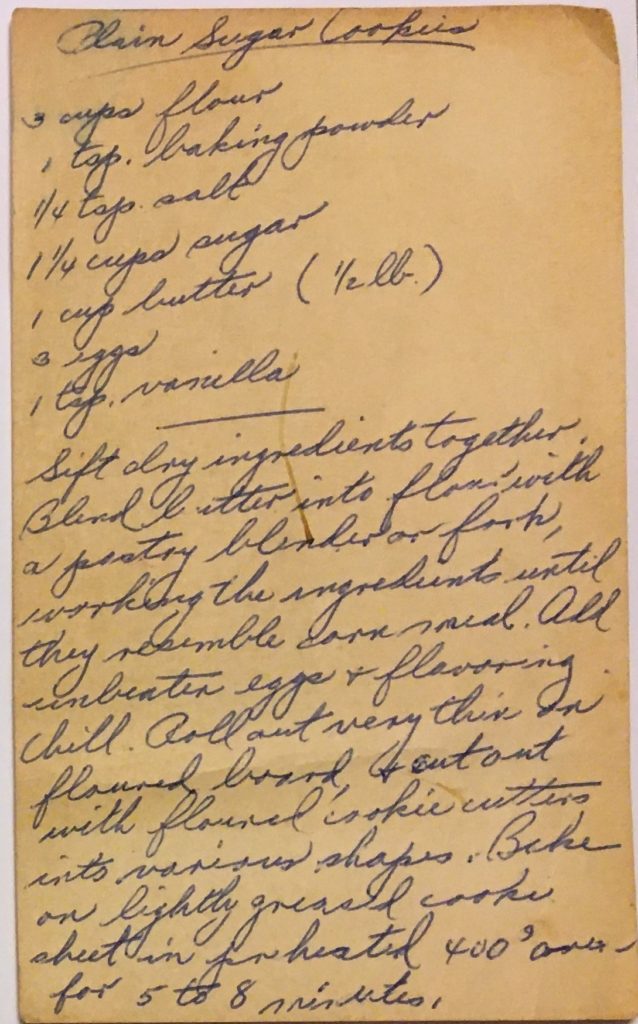 Plain Sugar Cookies
3 cups flour
1 tsp. baking powder
1/4 tsp. salt
1 1/4 cups sugar
1 cup butter (1/2 lb.)
3 eggs
1 tsp. vanilla
Sift dry ingredients together.
Blend butter into flour with
a pastry blender or fork,
working the ingredients until
they resemble corn meal. Add
unbeaten eggs + flavoring.
Chill. Roll out very thin on
floured board, + cut out
with floured cookie cutters
into various shapes. Bake
on lightly greased cookie
sheet in preheated 400° oven
for 5 to 8 minutes.